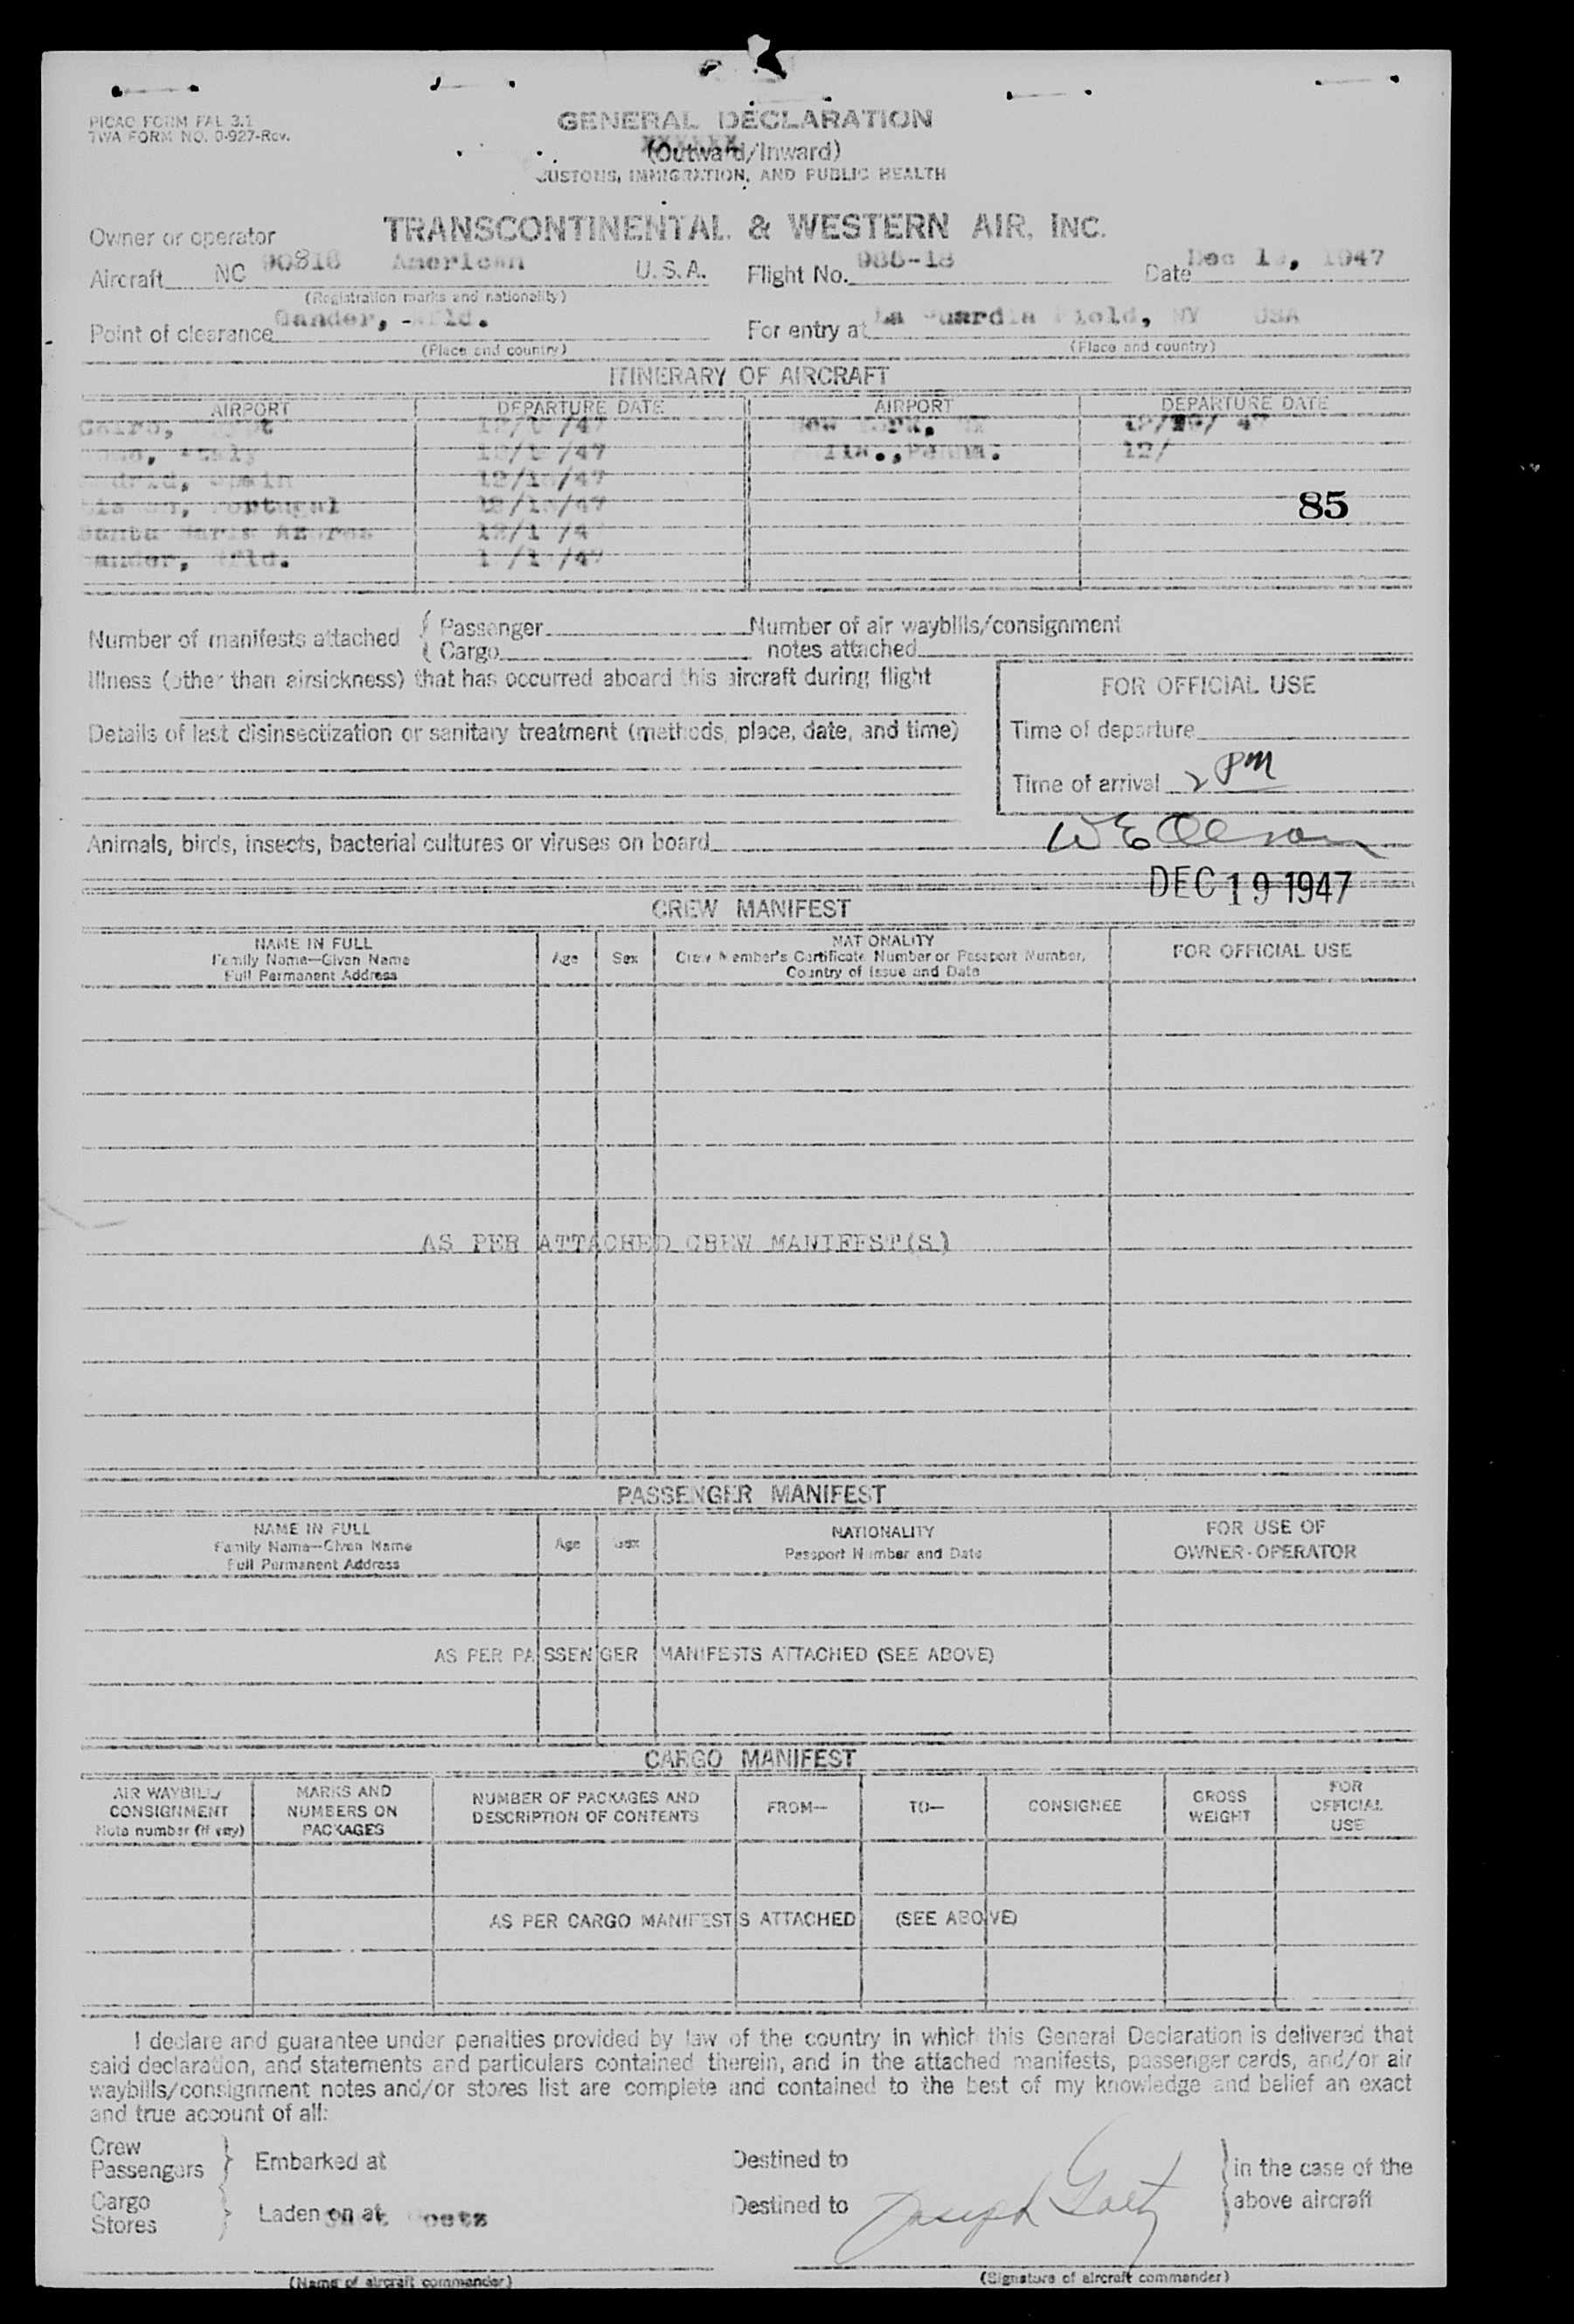 PICAO FORM FAL 3.1
TWA FORM NO. 0-927-Rev.
GENERAL DECLARATION
(Outward/Inward)
CUSTOMS, IMMIGRATION, AND PUBLIC HEALTH
Owner or operator TRANSCONTINENTAL & WESTERN AIR, INC.
Aircraft NC 90818 American U.S.A. Flight No. 986-18 Date Dec 1947
(Registration marks and nationality)
Point of clearance Gander, Nfld. For entry at La Guardia Field, NY USA
(Place and country) (Place and country)
ITINERARY OF AIRCRAFT
AIRPORT DEPARTURE DATE AIRPORT DEPARTURE DATE
Cairo, New York, NY
Italy Penna. 12/
Spain
Portugal
Santa Maria Azores
Gander, Nfld.
85
Number of manifests attached { Passenger Number of air waybills/consignment
{ Cargo notes attached
Illness (other than airsickness) that has occurred aboard this aircraft during flight
FOR OFFICIAL USE
Details of last disinsectization or sanitary treatment (methods, place, date, and time)
Time of departure
Time of arrival 2 PM
Animals, birds, insects, bacterial cultures or viruses on board
DEC 19 1947
CREW MANIFEST
NAME IN FULL
Family Name—Given Name
Full Permanent Address
Age Sex
NATIONALITY
Crew Member's Certificate Number or Passport Number,
Country of Issue and Date
FOR OFFICIAL USE
AS PER ATTACHED CREW MANIFEST(S)
PASSENGER MANIFEST
NAME IN FULL
Family Name—Given Name
Full Permanent Address
Age Sex
NATIONALITY
Passport Number and Date
FOR USE OF
OWNER-OPERATOR
AS PER PASSENGER MANIFESTS ATTACHED (SEE ABOVE)
CARGO MANIFEST
AIR WAYBILL/
CONSIGNMENT
Note number (if any)
MARKS AND
NUMBERS ON
PACKAGES
NUMBER OF PACKAGES AND
DESCRIPTION OF CONTENTS
FROM—
TO—
CONSIGNEE
GROSS
WEIGHT
FOR
OFFICIAL
USE
AS PER CARGO MANIFESTS ATTACHED (SEE ABOVE)
I declare and guarantee under penalties provided by law of the country in which this General Declaration is delivered that
said declaration, and statements and particulars contained therein, and in the attached manifests, passenger cards, and/or air
waybills/consignment notes and/or stores list are complete and contained to the best of my knowledge and belief an exact
and true account of all:
Crew
Passengers } Embarked at Destined to } in the case of the
Cargo
Stores } Laden on at Goetz Destined to Joseph Goetz } above aircraft
(Name of aircraft commander) (Signature of aircraft commander)